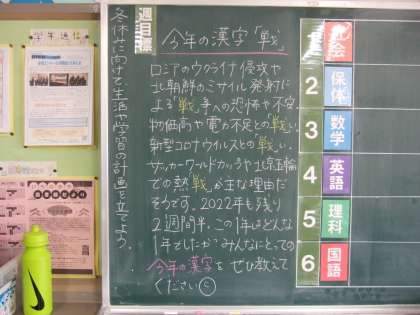 学年通信
週目標
冬休みに向けて生活や学習の計画を立てよう。
今年の漢字「戦」
ロシアのウクライナ侵攻や
北朝鮮のミサイル発射に
よる「戦」争への恐怖や不安。
物価高や電力不足との「戦」い、
新型コロナウイルスとの「戦」い。
サッカーワールドカップや北京五輪
での熱「戦」が主な理由だ
そうです。2022年も残り
2週間半。この1年はどんな
1年でしたか?みんなにとっての
今年の漢字をぜひ教えて
ください
1 社会
2 保体
3 数学
4 英語
5 理科
6 国語